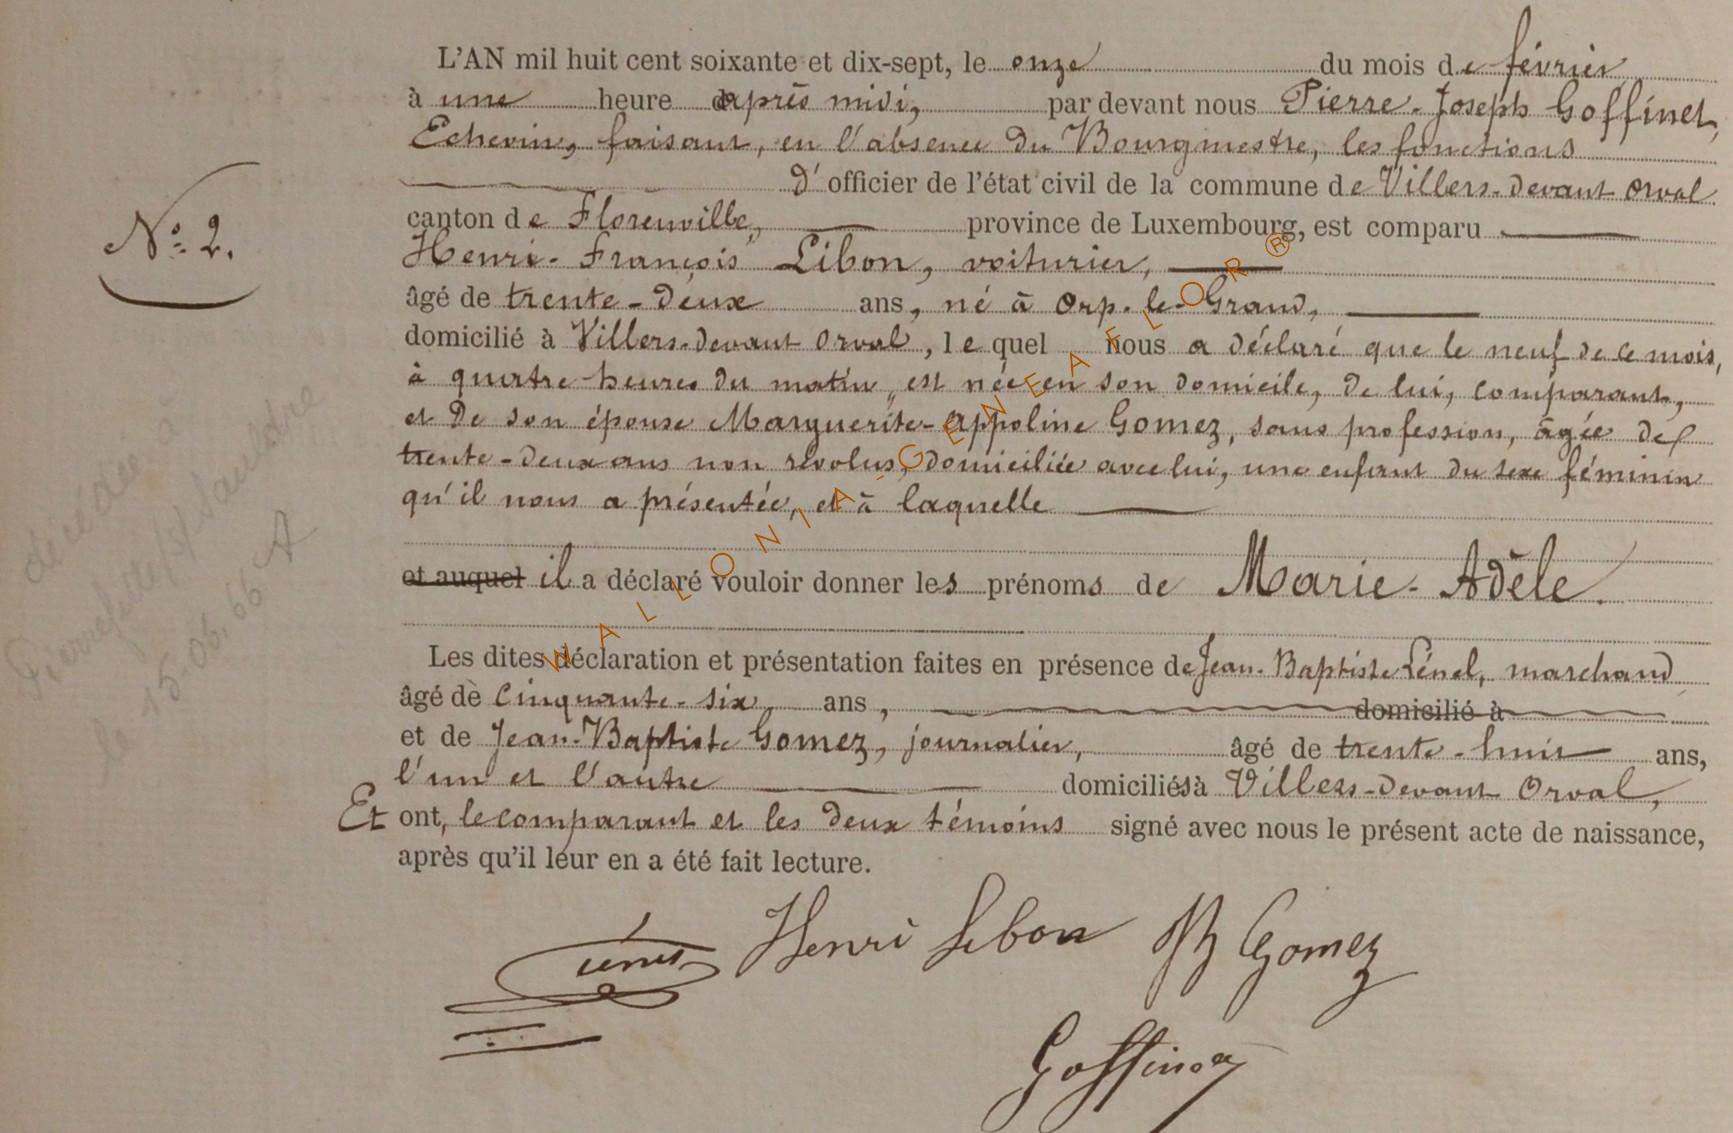 L'AN mil huit cent soixante et dix-sept, le onze du mois de février
à une heure après midi, par devant nous Pierre-Joseph Goffinet,
Echevin, faisant, en l'absence du Bourgmestre, les fonctions
d'officier de l'état civil de la commune de Villers-devant Orval
canton de Florenville, province de Luxembourg, est comparu
Henri-François Libon, voiturier,
âgé de trente-deux ans, né à Orp-le-Grand,
domicilié à Villers-devant Orval, lequel nous a déclaré que le neuf de ce mois,
à quatre heures du matin, est née en son domicile, de lui, comparant,
et de son épouse Marguerite-Appoline Gomez, sans profession, âgée de
trente-deux ans non révolus, domiciliée avec lui, une enfant du sexe féminin
qu'il nous a présentée, et à laquelle
et auquel il a déclaré vouloir donner les prénoms de Marie-Adèle.
Les dites déclaration et présentation faites en présence de Jean-Baptiste Lénel, marchand
âgé de cinquante-six ans, domicilié à
et de Jean-Baptiste Gomez, journalier, âgé de trente-huit ans,
l'un et l'autre domiciliés à Villers-devant Orval,
Et ont, le comparant et les deux témoins signé avec nous le présent acte de naissance,
après qu'il leur en a été fait lecture.
Henri Libon JB Gomez
Goffinet
No. 2.
décédée à
Pierrefitte s/ Sauldre
le 15-06.66 A
WALLONIA-GENEAFLOR®